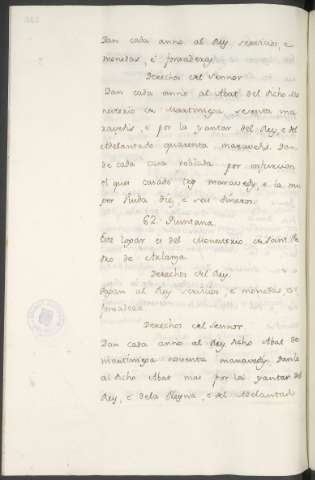 Dan cada anno al Rey servicios, e
monedas, e fonsadera.
Derechos del Sennor
Dan cada anno al Abat del dicho Mo
nesterio de sesenta ma
ravedis, e por la yantar del Rey, e del
Adelantado quarenta maravedis. Dan
de cada casa poblada por infurcion
el que es casado tres maravedis, e la mu
ger viuda diez, e seis dineros.
62. Quintana.
Este logar es del Monesterio de Sant Pe
dro de
Derechos del Rey
Pagan al Rey servicios, e monedas, e
fonsadera
Derechos del Sennor
Dan cada anno al Rey dicho Abat de
noventa maravedis. Danle
al dicho Abat mas por la yantar del
Rey, e dela Reyna, e del Adelantado